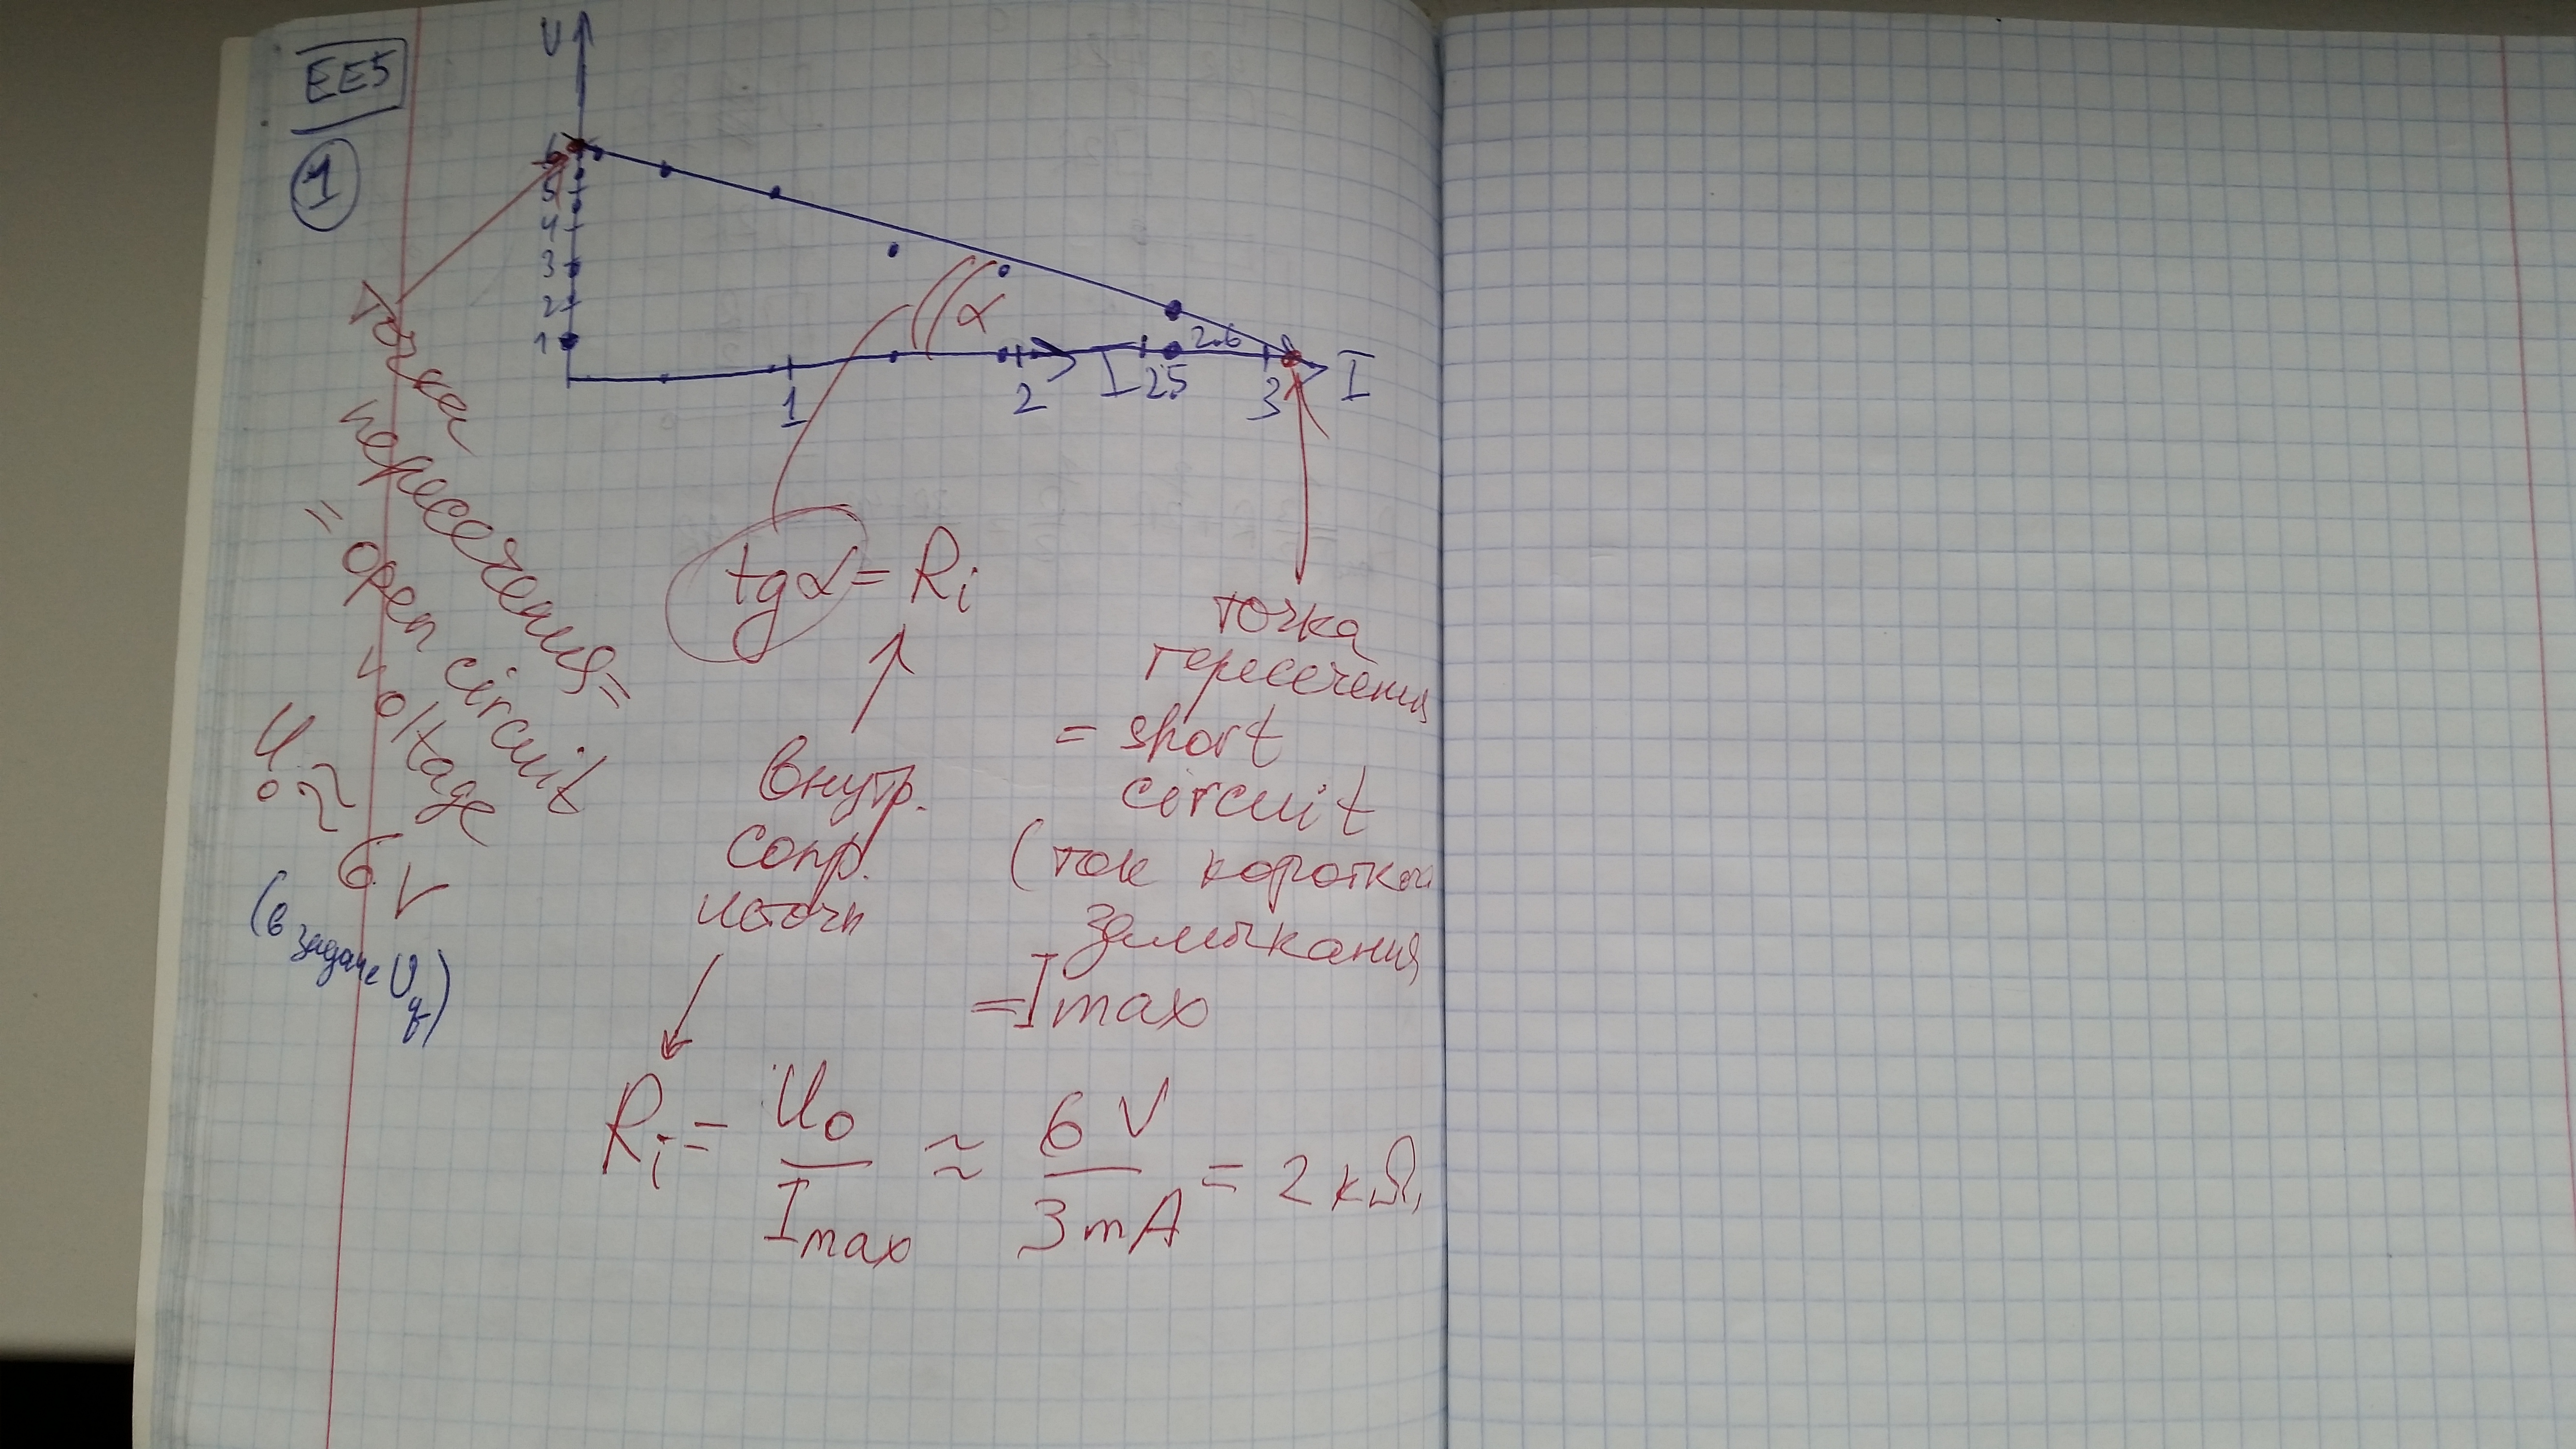 EE5
1
U
6
5
4
3
2
1
α
2.6
1
2
I
2.5
3
I
точка
пересечения =
= open circuit
voltage
U₀ ≈
6 V
(в задаче Uq)
tgα = Ri
внутр.
сопр.
источн
точка
пересечения
= short
circuit
(ток короткого
замыкания
= I max
Ri = U₀ / I max ≈ 6 V / 3 mA = 2 kΩ